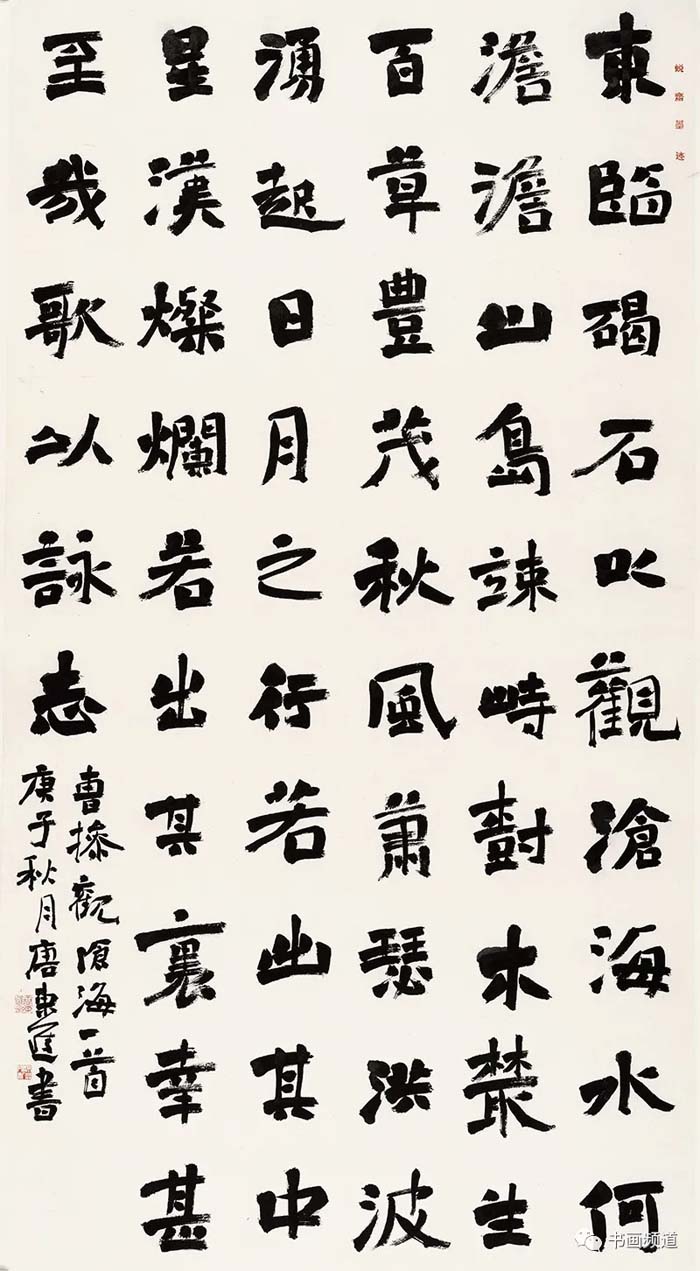 東臨碣石以觀滄海水何
澹澹山島竦峙樹木叢生
百草豊茂秋風蕭瑟洪波
湧起日月之行若出其中
星漢燦爛若出其裏幸甚
至哉歌以詠志
曹操觀滄海一首
庚子秋月唐東進書
蜕齋墨迹
书画频道